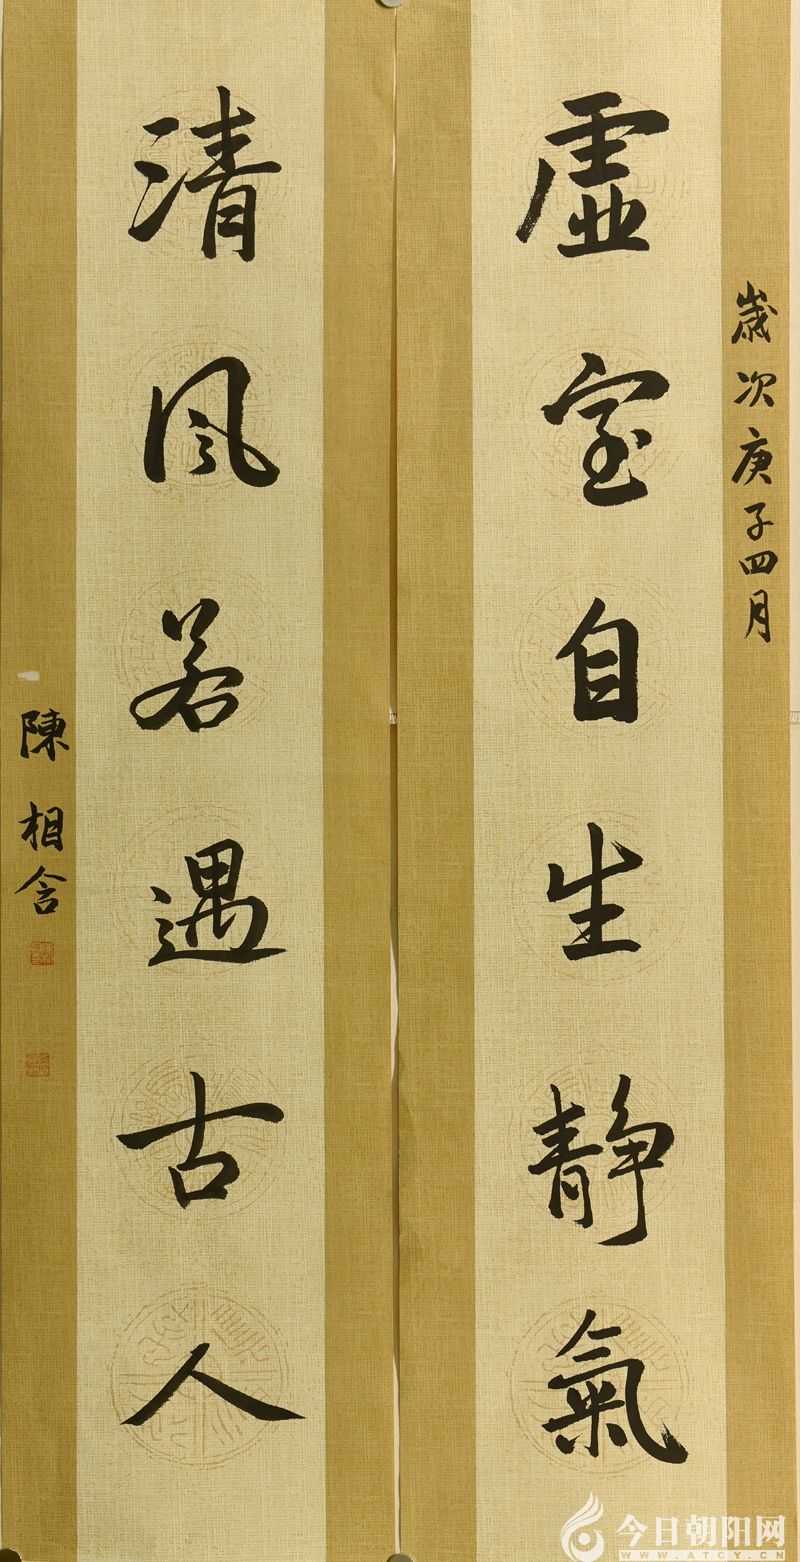 歲次庚子四月
虛室自生靜氣
清風若遇古人
陳相含
今日朝阳网
WWW.ATCY.CN